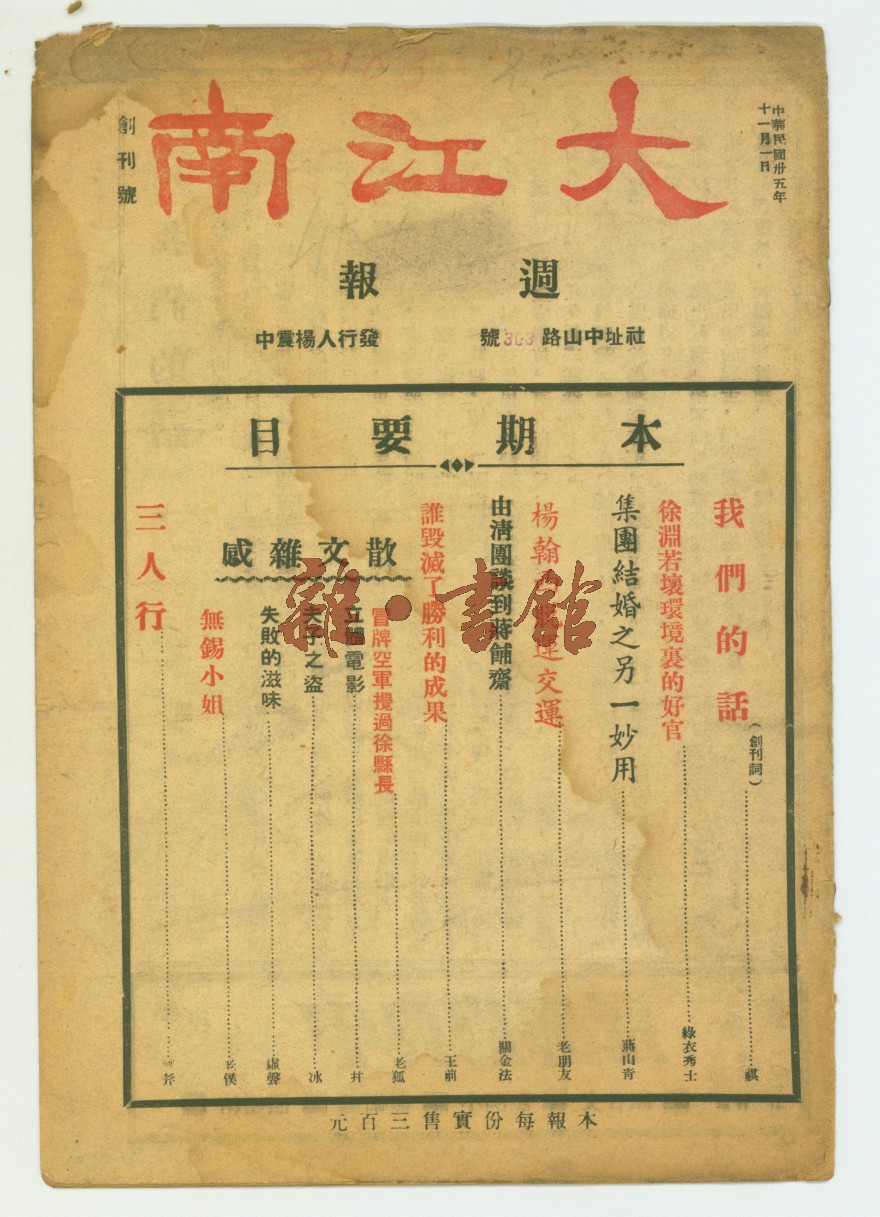 中華民國卅五年
十一月一日
大江南
創刊號
週報
社址中山路363號
發行人楊震中
本期要目
我們的話(創刊詞) 祺
徐淵若壞環境裏的好官 綠衣秀士
集團結婚之另一妙用 蔣山青
楊翰 運交運 老朋友
由清團談到蔣餔齋 關金法
誰毀滅了勝利的成果 王前
散文雜感
冒牌空軍攪過徐縣長 老狐
立體電影 井
夫子之盜 冰
失敗的滋味 虛聲
無錫小姐 老僕
三人行 斧
本報每份實售三百元
雜·書館